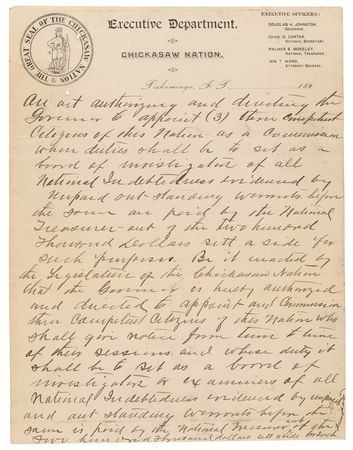 THE GREAT SEAL OF THE CHICKASAW NATION
Executive Department.
CHICKASAW NATION.
EXECUTIVE OFFICERS:
DOUGLAS H. JOHNSTON,
GOVERNOR.
CHAS. D. CARTER,
NATIONAL SECRETARY.
PALMER S. MOSELEY,
NATIONAL TREASURER.
WM. T. WARD,
ATTORNEY GENERAL.
Tishomingo, I. T. 189
An act authorizing and directing the
Governor to appoint (3) three competent
Citizens of this Nation as a Commission
whose duties shall be to set as a
board of investigator of all
National Indebtedness evidenced by
unpaid out standing warrants before
the same are paid by the National
Treasurer out of the two hundred
Thousand Dollars sett a side for
such purposes. Be it enacted by
the Legislature of the Chickasaw Nation
that the Governor is hereby authorized
and directed to appoint and Commission
three Competent Citizens of this Nation who
shall give notice from time to time
of their sessions and whose duty it
shall be to set as a board of
investigator & examiners of all
National Indebtedness evidenced by unpaid
and out standing warrants before the
same is paid by the National Treasurer out of the
Two hundred thousand dollars sett aside for such